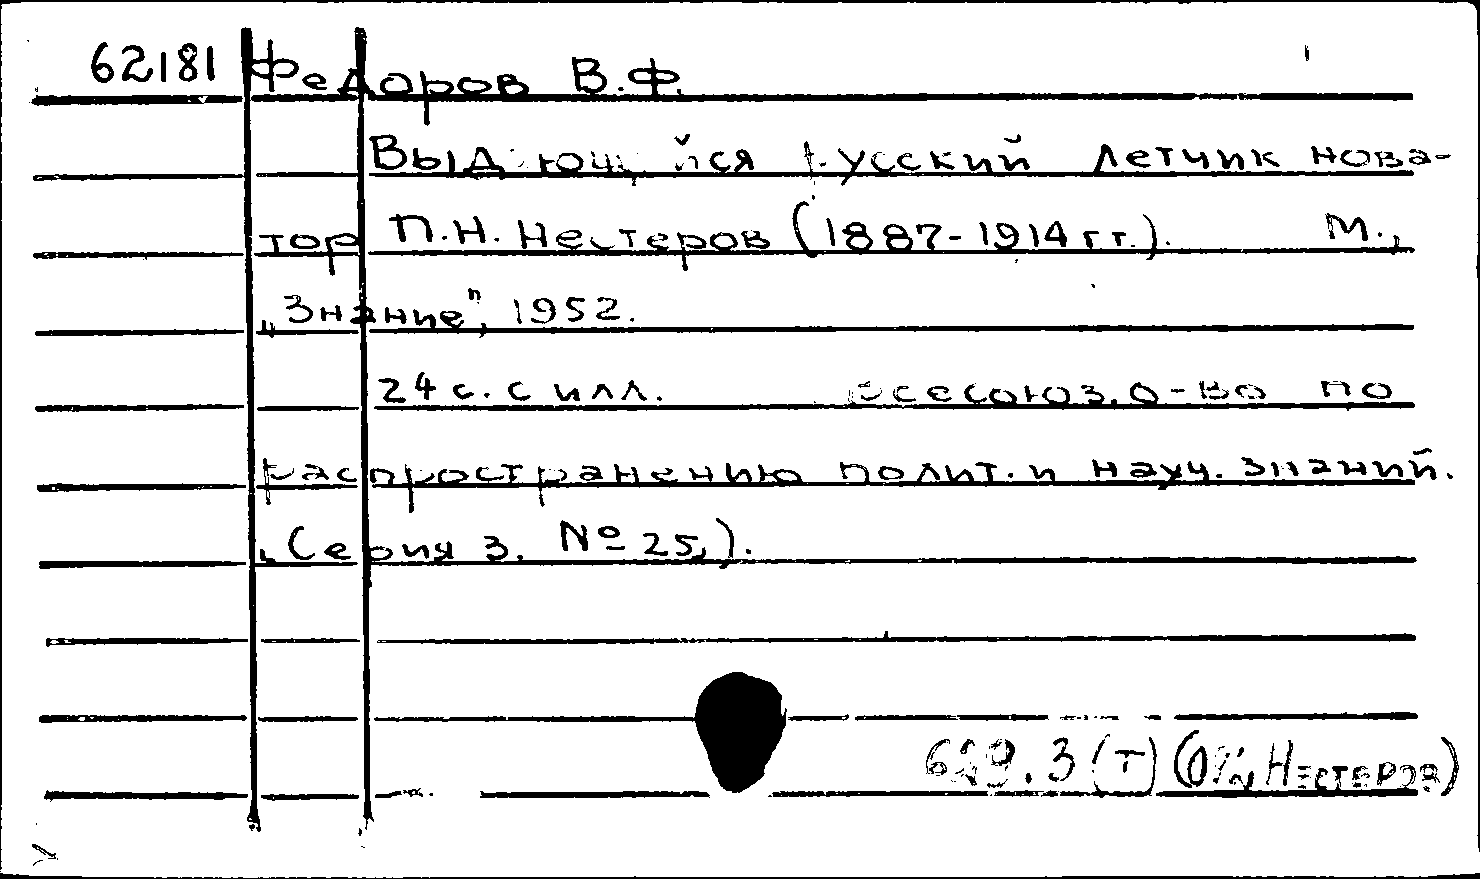 62181 Федоров В.Ф.
Выдающийся русский летчик нова-
тор П.Н. Нестеров (1887-1914 гг.). М.,
„Знание", 1952.
24 с. с илл. Всесоюз. о-во по
распространению полит. и науч. знаний.
(Серия 3. № 25,).
629.3 (Т) Нестеров)